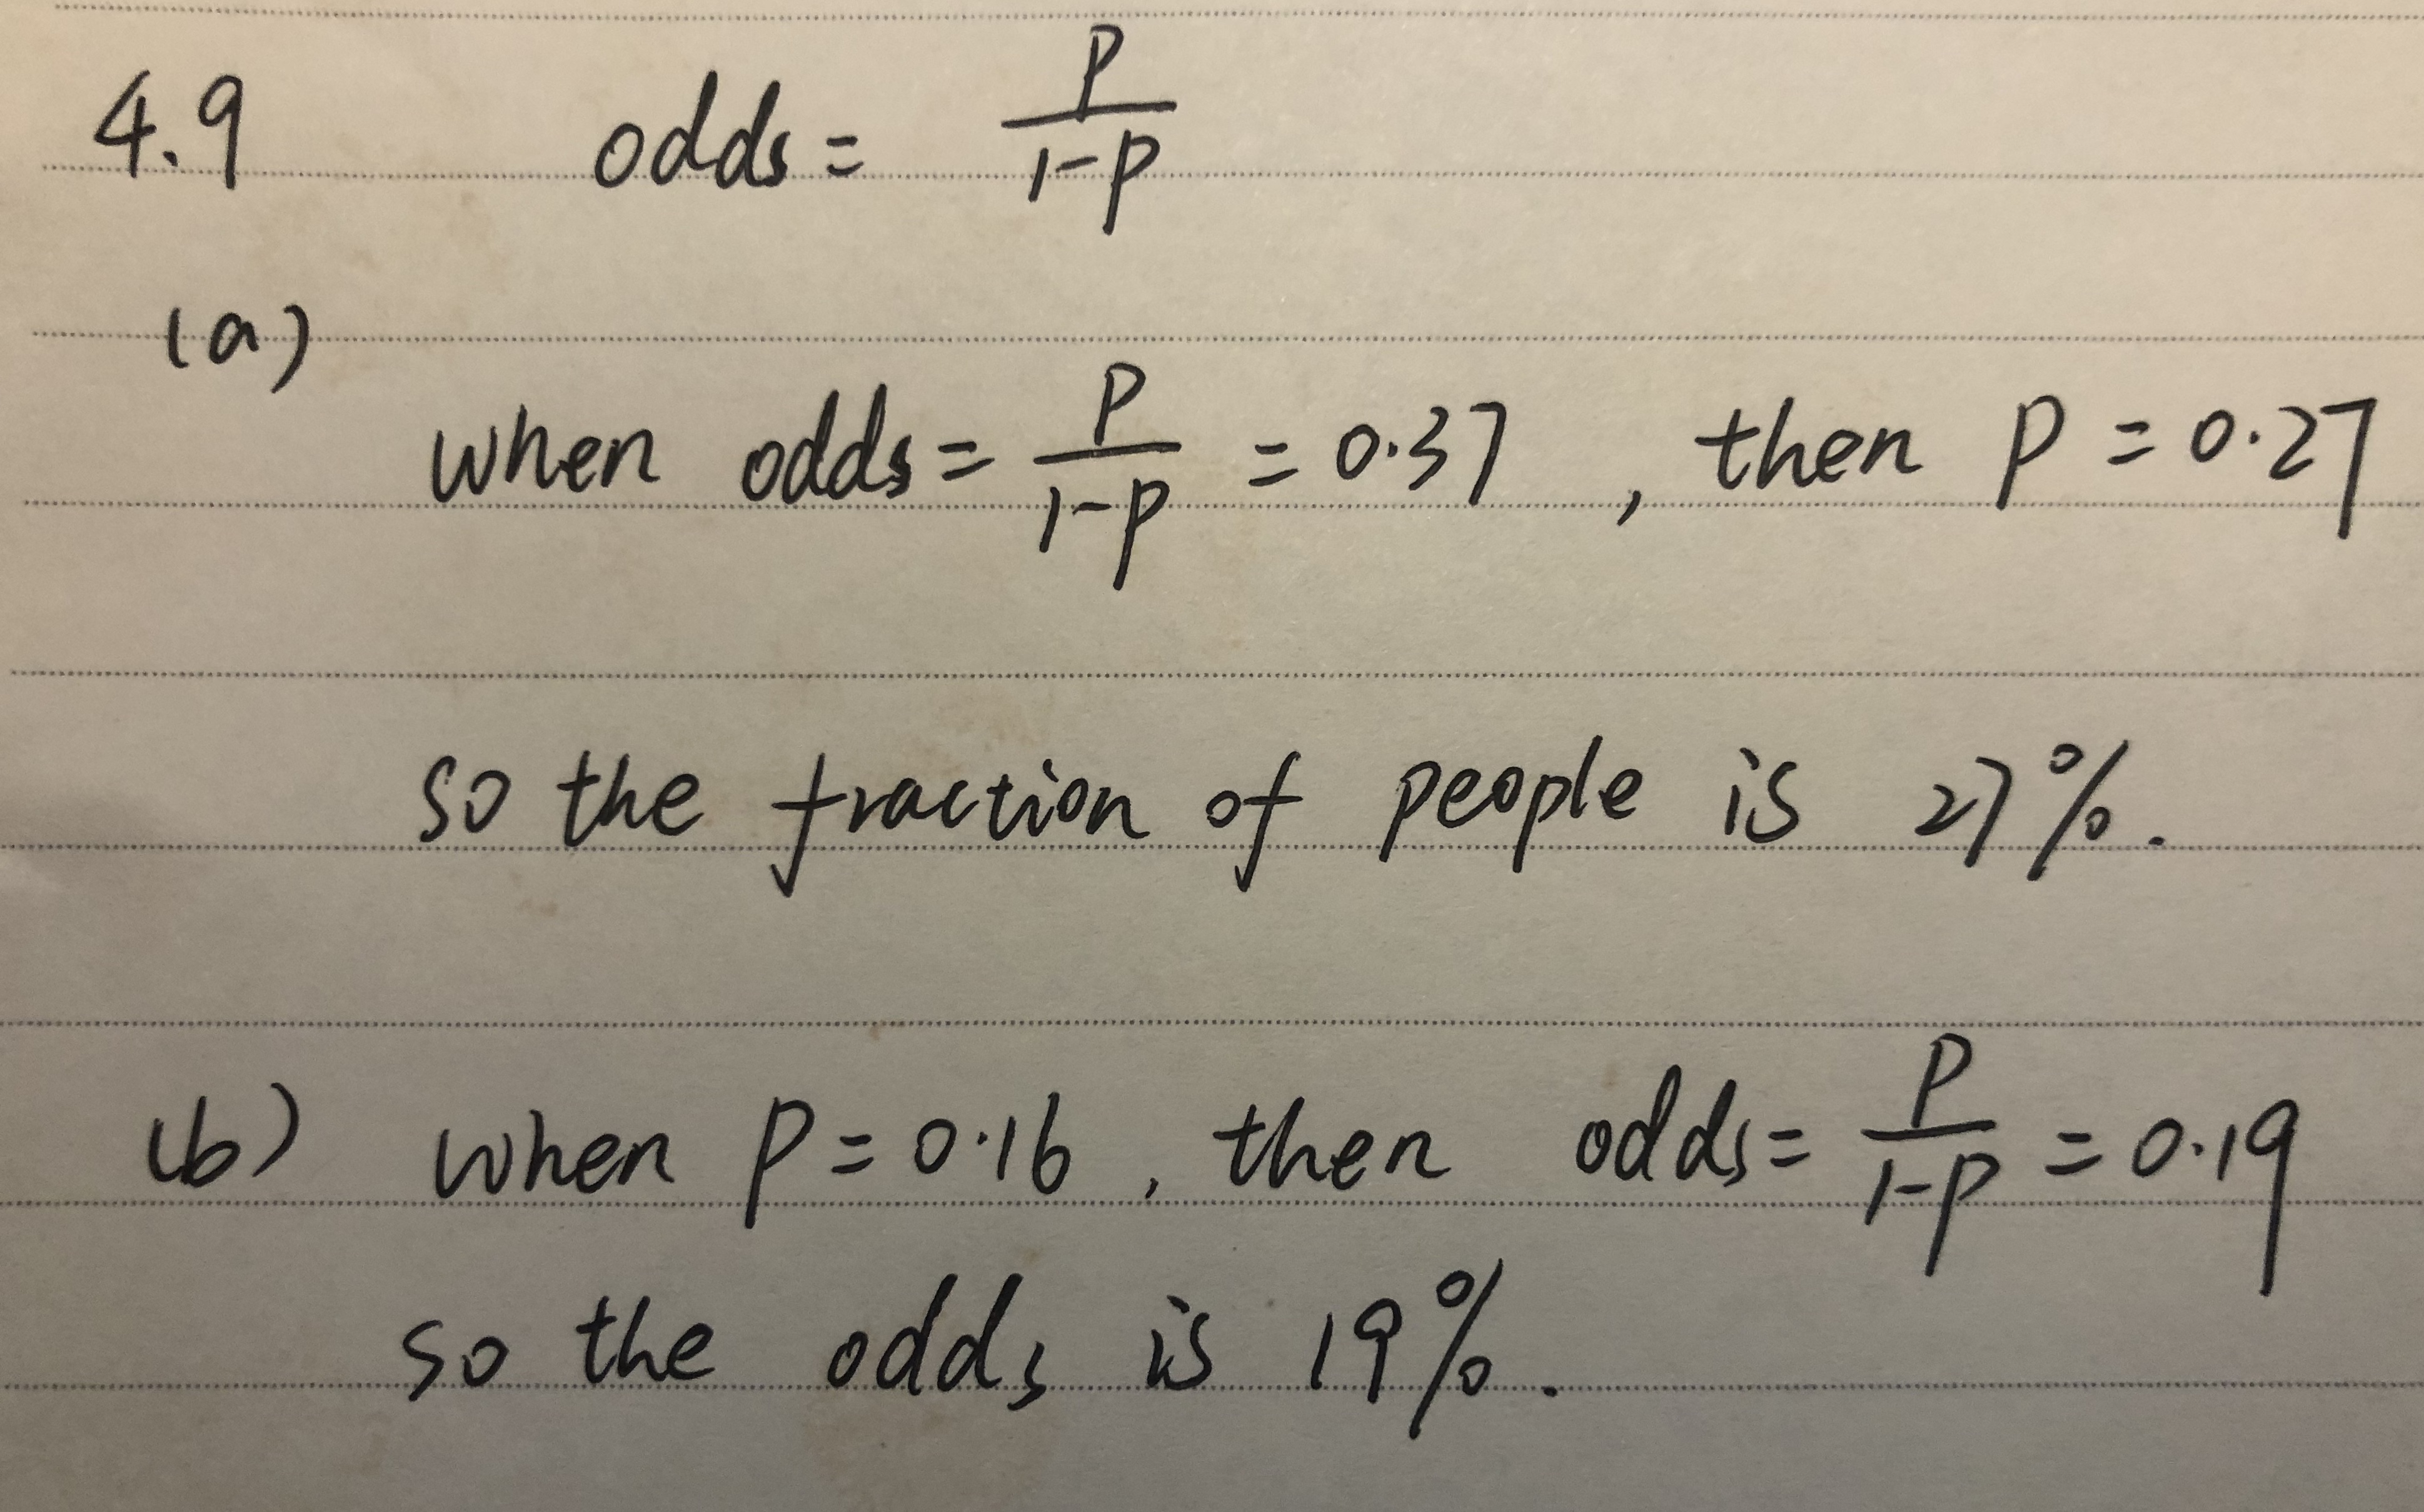 4.9 odds = P/1-P
(a)
when odds = P/1-P = 0.37 , then P = 0.27
so the fraction of people is 27%.
(b) when P = 0.16 , then odds = P/1-P = 0.19
so the odds is 19%.